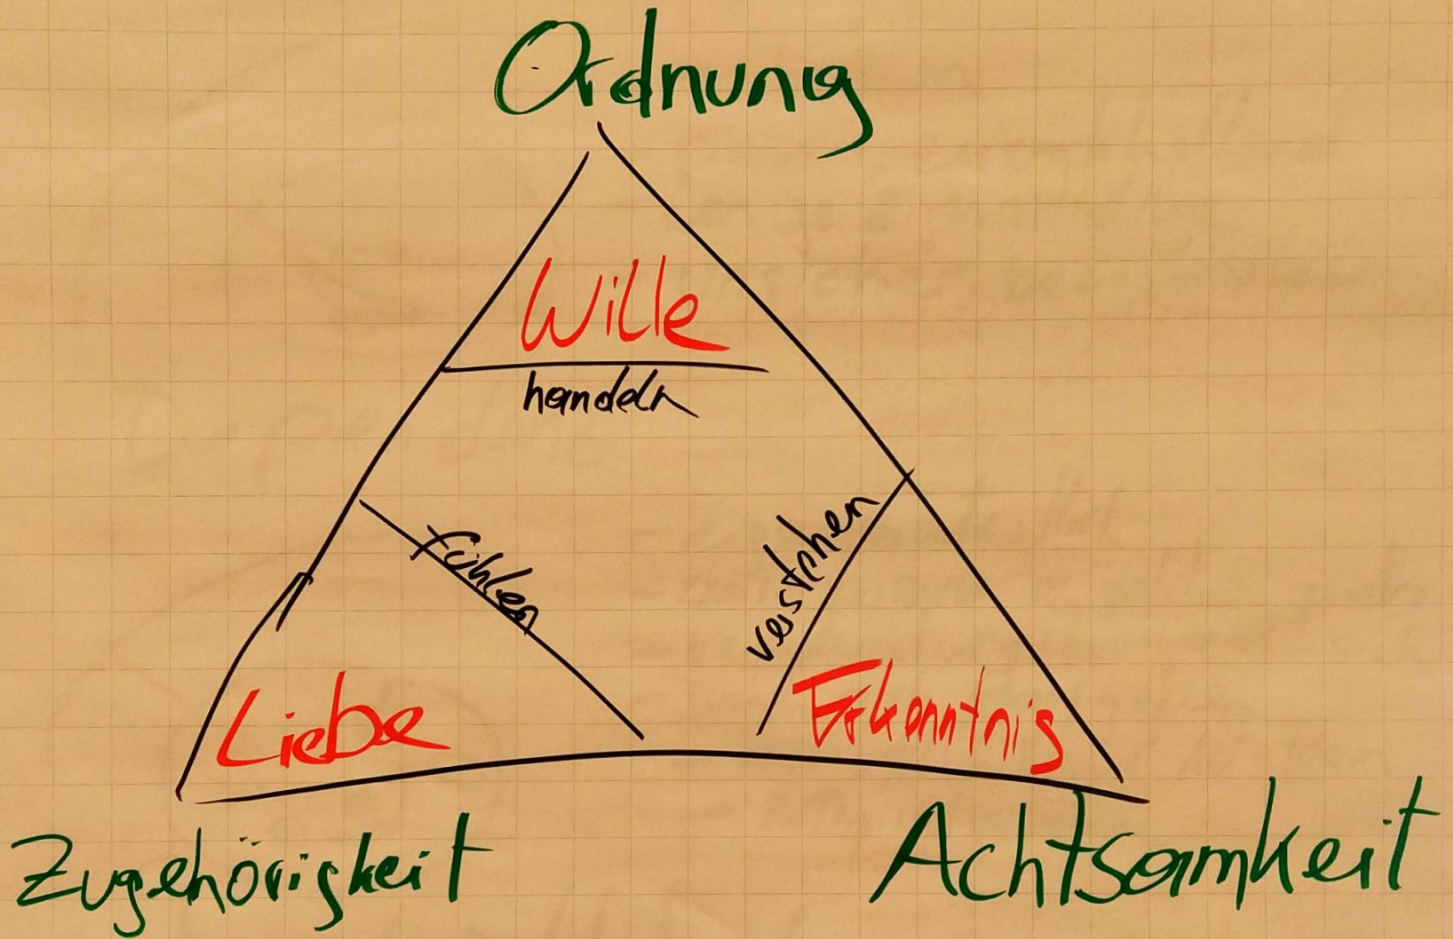 Ordnung
Wille
handeln
fühlen
verstehen
Liebe
Erkenntnis
Zugehörigkeit
Achtsamkeit